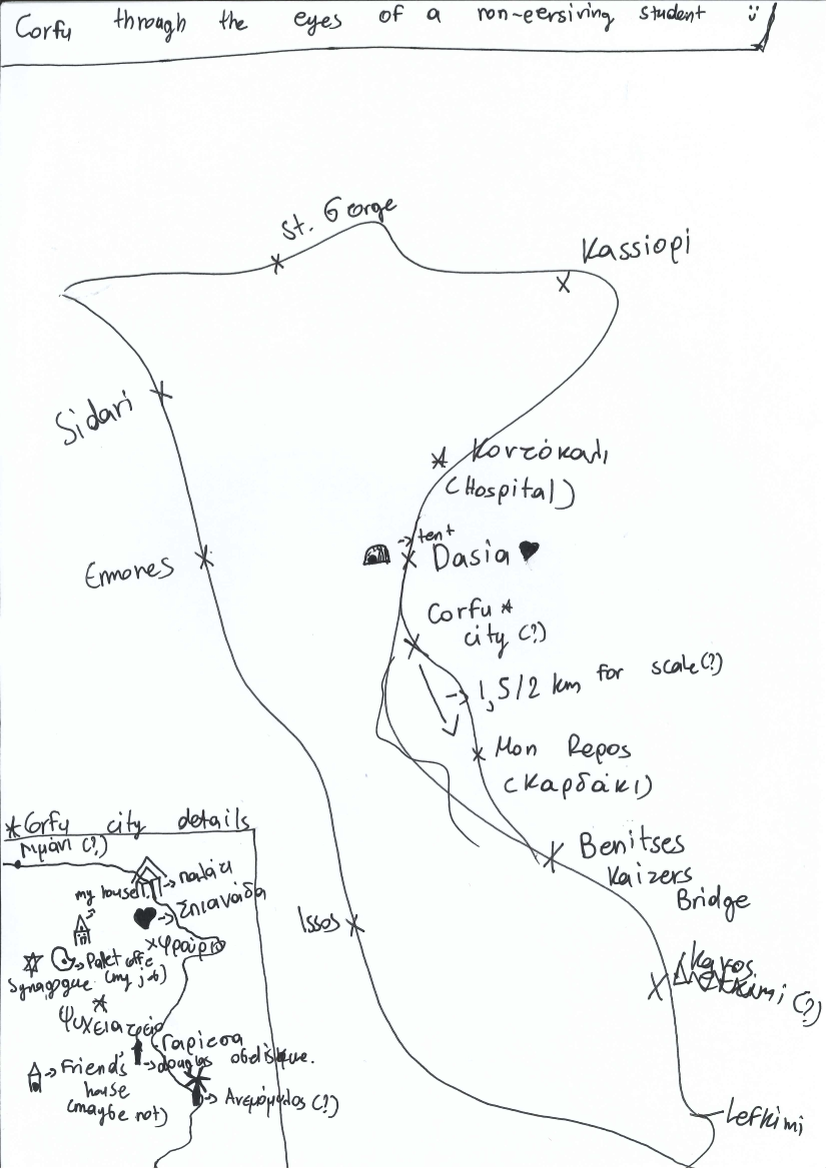 Corfu through the eyes of a non-eersiving student
St. George
Kassiopi
Sidari
Κοντόκαλι
(Hospital)
-> tent
Dasia ♥
Ermones
Corfu *
city (?)
-> 1,5/2 km for scale(?)
Mon Repos
(Καρδάκι)
Benitses
Kaizers
Bridge
Issos
Kavos
Lefkimi
*Corfu city details
Λιμάνι (?)
my house!
-> παλάτι
-> Σπιανάδα
φρούριο
-> Palet coffe
(my job)
Synagogue
Ψυχειατρείο
Γαρίτσα
-> douglas obelisque.
-> Friend's
house
(maybe not)
-> Ανεμόμυλος (?)